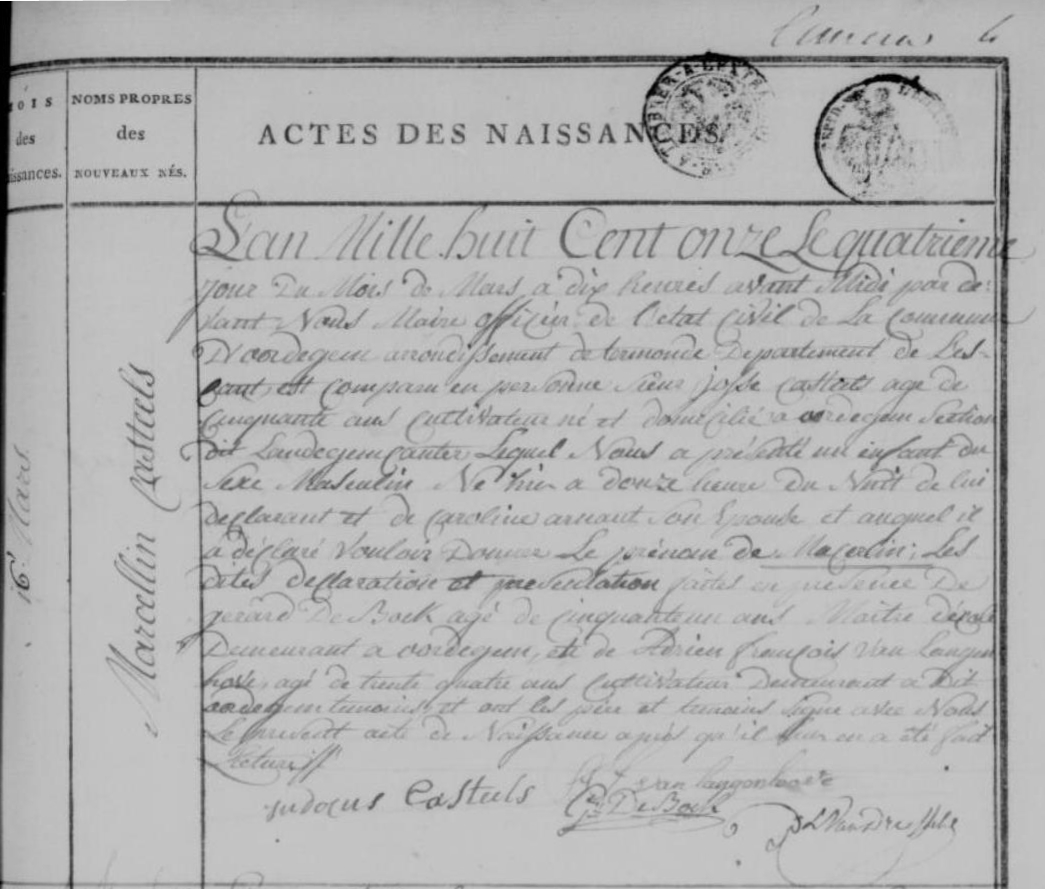 MOIS
des
NAISSANCES.
NOMS PROPRES
des
NOUVEAUX NÉS.
ACTES DES NAISSANCES.
Mars
Marcellin Casteels
L'an Mille huit Cent onze Le quatrieme
jour Du Mois de Mars a dix heures avant Midi par de-
vant Nous Maire officier de L'etat Civil de La Commune
D'oordegem arrondissement de termonde Departement de Les-
caut, est comparu en personne Sieur josse Casteels age de
Cinquante ans Cultivateur né et domicilié a oordegem Section
dit Landegem Canter Lequel Nous a présenté un enfant du
Sexe Masculin Né hier a douze heure du Nuit de lui
declarant et de Caroline arnant Son Epouse et auquel il
a déclaré Vouloir Donner Le prénom de Macerlin; Les
dites declaration et presentation faites en presence De
gerard De Bock agé de cinquanteun ans Maitre d'école
Demeurant a oordegem, et de Adrien françois Van Langen
hove, agé de trente quatre ans Cultivateur Demeurant a Dit
oordegem temoins, et ont les père et temoins signe avec Nous
Le present acte de Naissance apres qu'il leur en a été fait
Lecture
van langenhove
judocus Casteels
De Bock